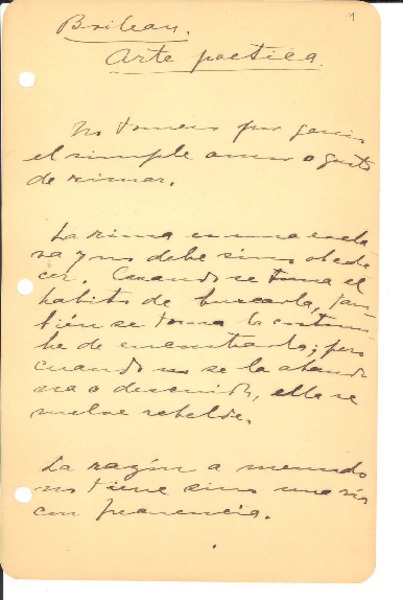 1
Boileau.
Arte poetica.
No tomeis por genio
el simple amor o gusto
de rimar.
La rima es una escla
va y no debe sino obede
cer. Cuando se toma el
habito de buscarla, tam
bién se toma la costum
bre de encontrarla; pero
cuando se la aban
na o descuida, ella se
vuelve rebelde.
La razón a menudo
no tiene sino una vía
con frecuencia.